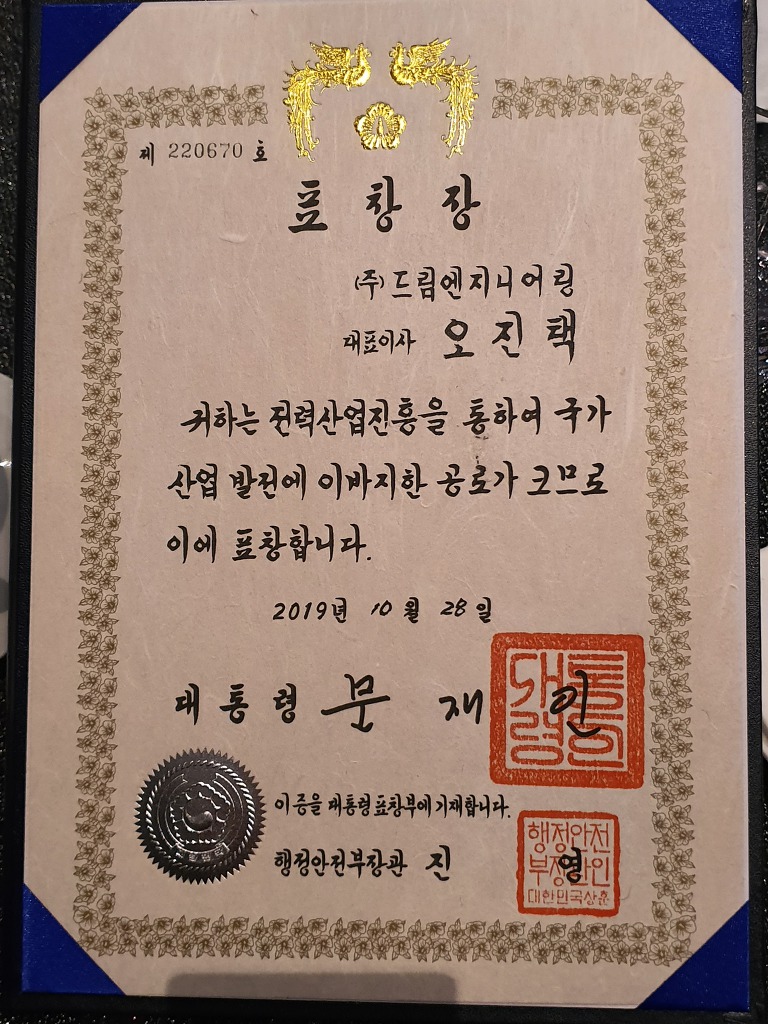 제 220670 호
표 창 장
(주)드림엔지니어링
대표이사 오 진 택
귀하는 전력산업진흥을 통하여 국가
산업 발전에 이바지한 공로가 크므로
이에 표창합니다.
2019년 10월 28일
대 통 령 문 재 인
대통령의인
이 증을 대통령표창부에 기재합니다.
행정안전부장관 진 영
행정안전
부장관인
대한민국상훈